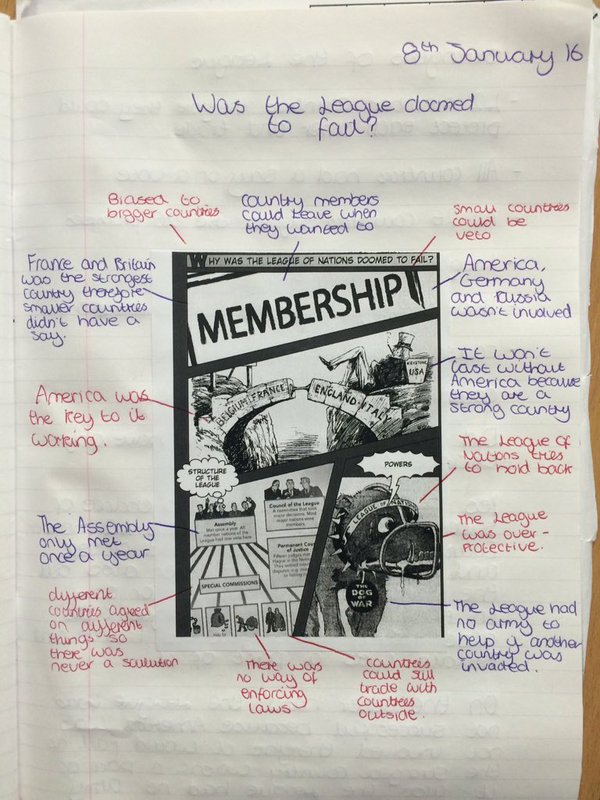 8th January 16
Was the League doomed
to fail?
Biased to
bigger countries
country members
could leave when
they wanted to
small countries
could be
veto
France and Britain
was the strongest
country therefore
smaller countries
didn't have a
say.
America,
Germany
and Russia
wasn't involved
WHY WAS THE LEAGUE OF NATIONS DOOMED TO FAIL?
MEMBERSHIP
It won't
last without
America because
they are a
strong country
KEYSTONE
USA
BELGIUM
FRANCE
ENGLAND
ITALY
America was
the key to it
working.
The League of
Nations tries
to hold back
STRUCTURE
OF THE
LEAGUE
POWERS
Council of the League
Assembly
Permanent Cou
of Justice
SPECIAL COMMISSIONS
LEAGUE OF
THE
DOG
OF
WAR
The Assembly
only met
once a year
The League
was over-
protective.
different
countries agreed
on different
things so
there was
never a soulution
The League had
no army to
help if another
country was
invaded.
There was
no way of
enforcing
laws
countreis
could still
trade with
countrees
outside.